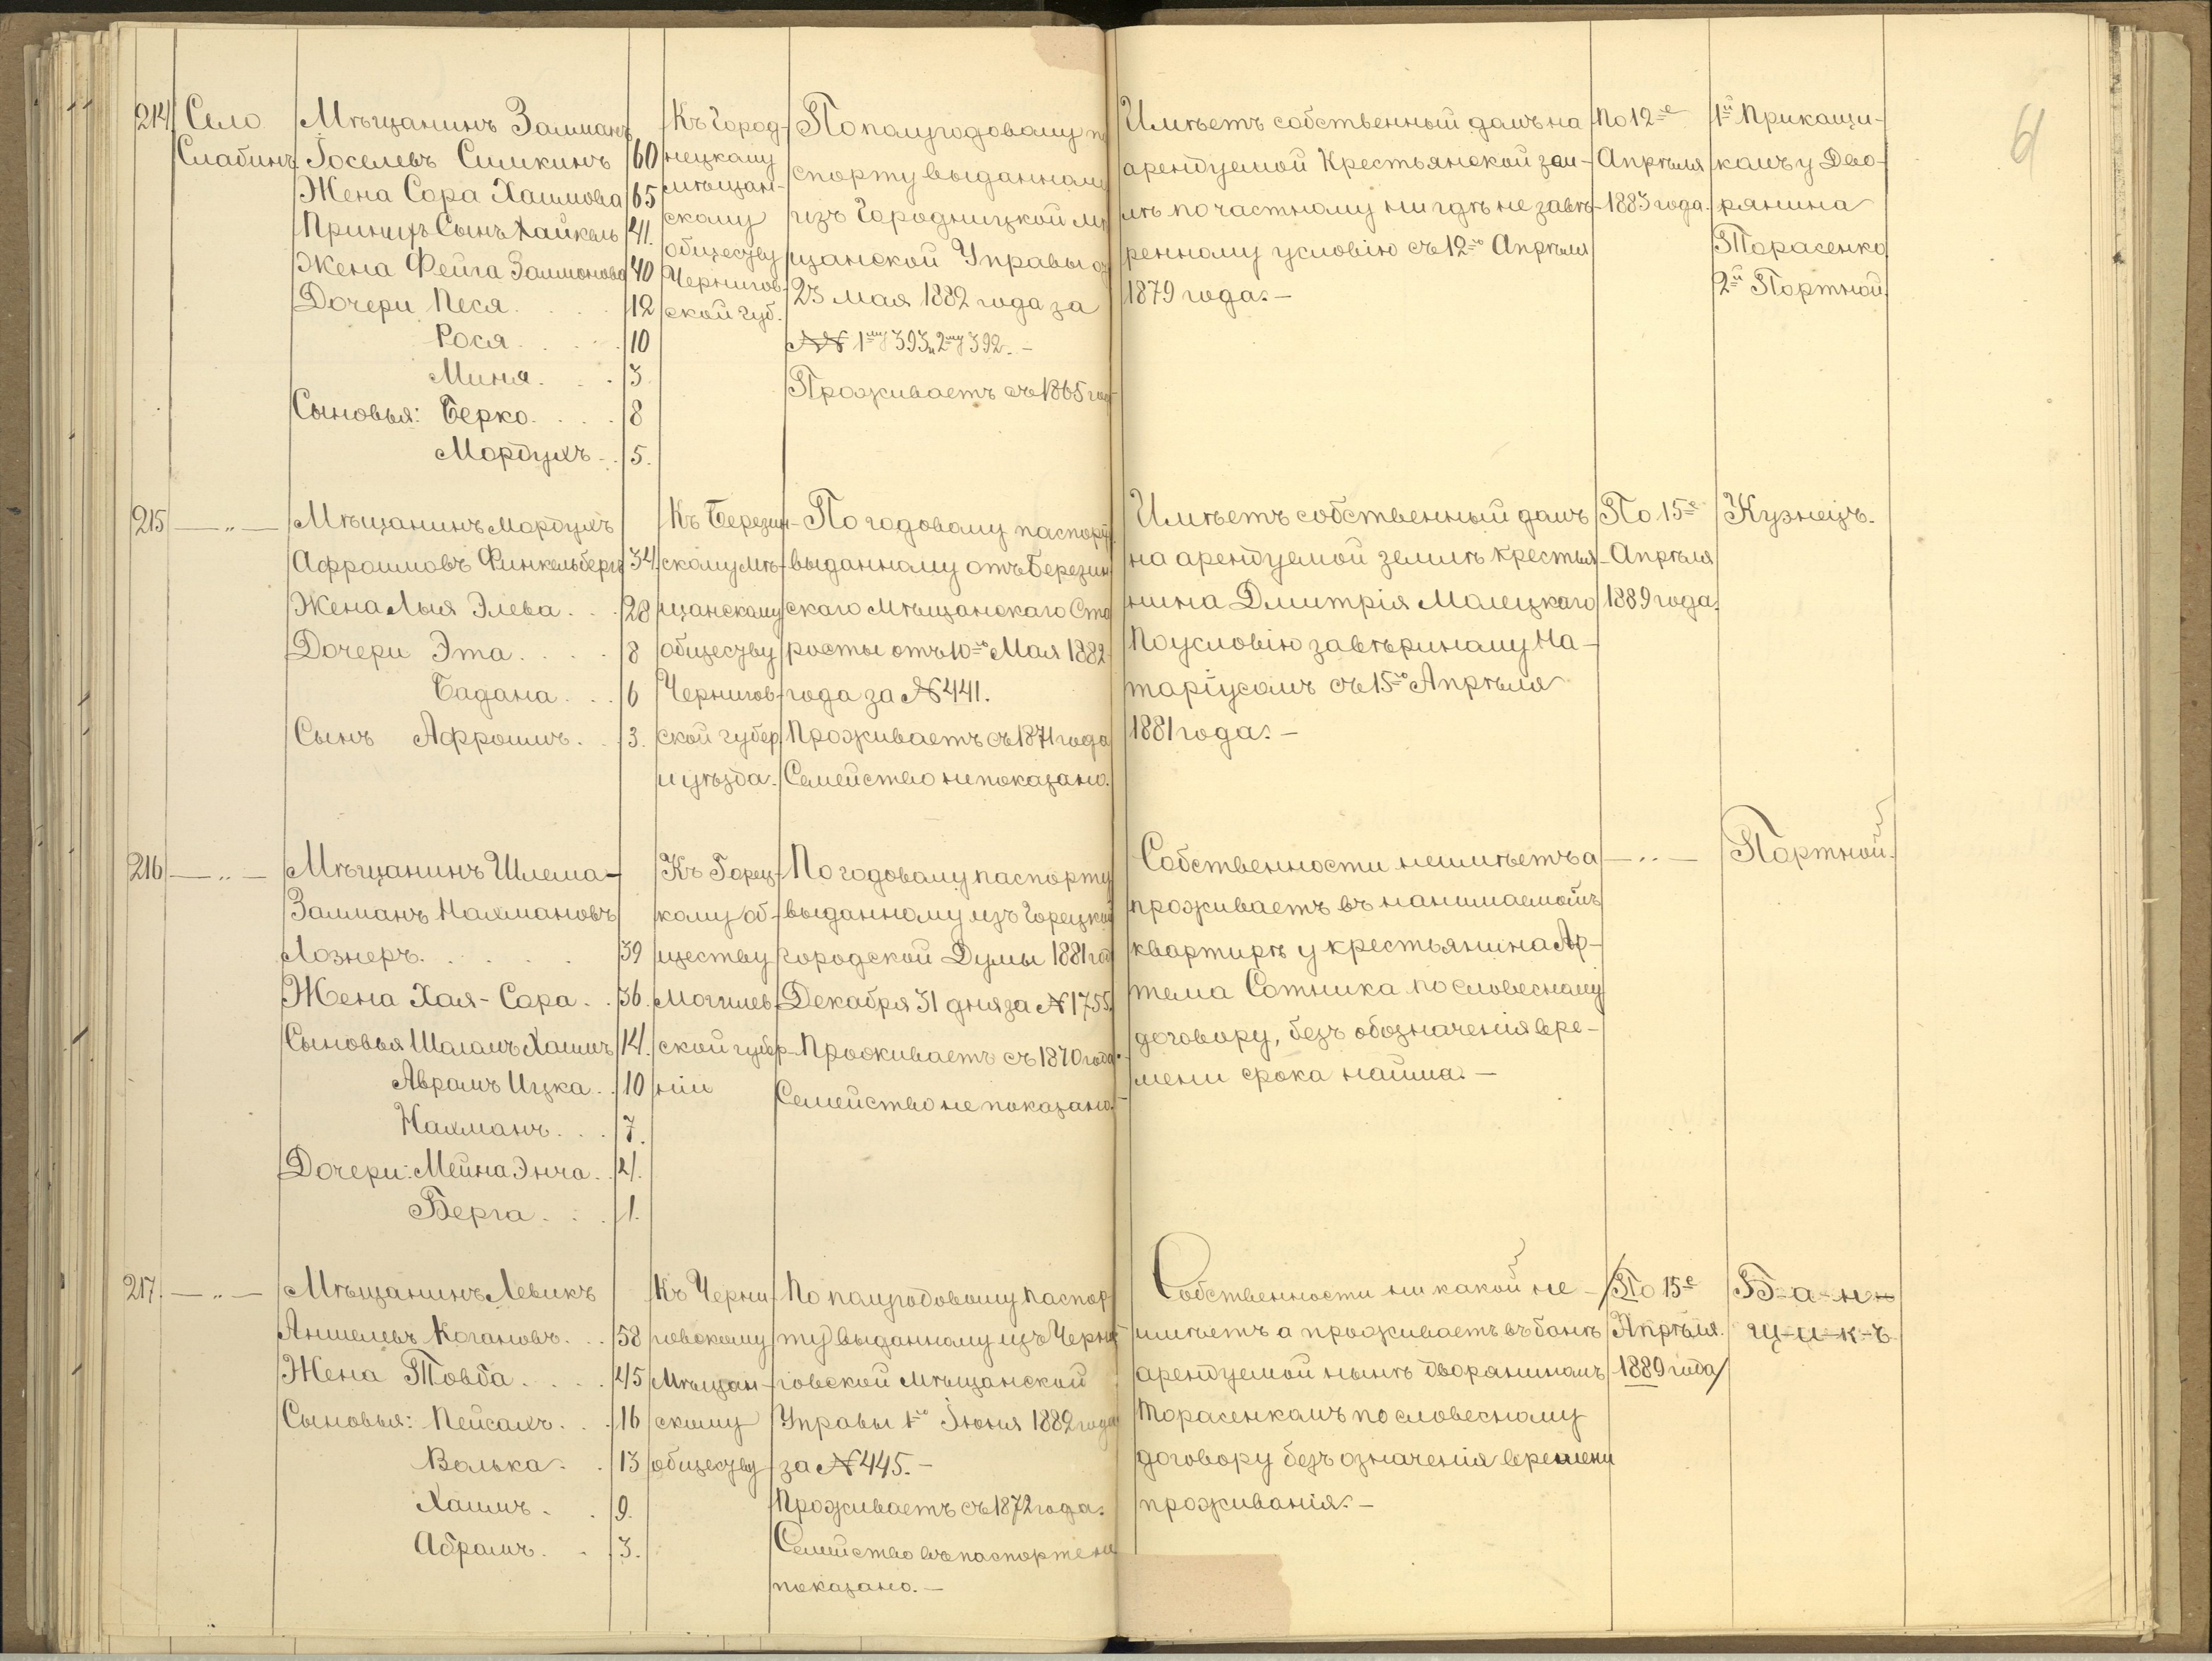 61
214
Село
Слабинъ
Мѣщанинъ Залманъ
Іоселевъ Симкинъ 60
Жена Сора Хаимова 65
Приимъ Сынъ Хайкель 41.
Жена Фейга Залмонова 40
Дочери Песя . . . . 12
Рося . . . . 10
Миня . . . 3
Сыновья: Берко . . . . 8
Мордухъ . . 5.
Къ Город-
нецкому
мѣщан-
скому
обществу
Чернигов-
ской губ.
По полугодовому па
спорту выданному
изъ Городницкой мѣ
щанской Управы от
23 Мая 1882 года за
№№ 1му 393 и 2му 392. –
Проживаетъ съ 1865 год
Имѣетъ собственный домъ на
арендуемой Крестьянской зем-
лѣ по частному ни гдѣ не завѣ-
ренному условію съ 12го Апрѣля
1879 года. –
По 12е
Апрѣля
1883 года.
1й Прикащи-
комъ у Дво-
рянина
Тарасенко
2й Портной
215 — „ —
Мѣщанинъ Мордухъ
Афроимовъ Финкельбергъ 34
Жена Лыя Элева . . . 28
Дочери Эта . . . . 8
Бадана . . . 6
Сынъ Афроимъ . . 3.
Къ Березин-
скому мѣ-
щанскому
обществу
Чернигов-
ской губер
и уѣзда.
По годовому паспорту
выданному отъ Березин
скаго Мѣщанскаго Ста
росты отъ 10го Мая 1882
года за № 441.
Проживаетъ съ 1871 года
Семейство не показано.
Имѣетъ собственный домъ
на арендуемой землѣ крестья-
нина Дмитрія Малецкаго
по условію завѣриному На-
таріусомъ съ 15го Апрѣля
1881 года. –
По 15е
Апрѣля
1889 года.
Кузнецъ.
216 — „ —
Мѣщанинъ Шлема-
Залманъ Нахмановъ
Лознеръ . . . . . 39
Жена Хая-Сора . . 36.
Сыновья Шоломъ Хаимъ 14.
Аврамъ Ицка . . 10
Нахманъ . . . 7.
Дочери: Мейна Энча . . 21.
Берга . . . 1.
Къ Горец-
кому об-
ществу
Могилев-
ской губер-
ніи
По годовому паспорту
выданному изъ Горецкой
городской Думы 1881 год
Декабря 31 дня за № 1755.
Проживаетъ съ 1870 года.
Семейство не показано.
Собственности не имѣетъ а
проживаетъ въ нанимаемой
квартирѣ у крестьянина Ар-
тема Сотника по словесному
договору, безъ обозначенія вре-
мени срока найма. –
— „ —
Портной.
217. — „ —
Мѣщанинъ Левикъ
Аншелевъ Когановъ . . 58
Жена Товба . . . . 45
Сыновья: Пейсахъ . . 16
Волька . . 13
Хаимъ . . 9.
Абрамъ . . 3.
Къ Черни-
говскому
Мѣщан-
скому
обществу
По полугодовому паспор
ту выданному изъ Черни
говской мѣщанской
Управы 1го Іюня 1882 года
за № 445. –
Проживаетъ съ 1872 года.
Семейство въ паспорте не
показано. –
Собственности ни какой не –
имѣетъ а проживаетъ въ банѣ
арендуемой нынѣ дворяниномъ
Тарасенкомъ по словесному
договору безъ означенія времени
проживанія. –
/По 15е
Апрѣля.
1889 года/
Б-а-н-
щ-и-к-ъ